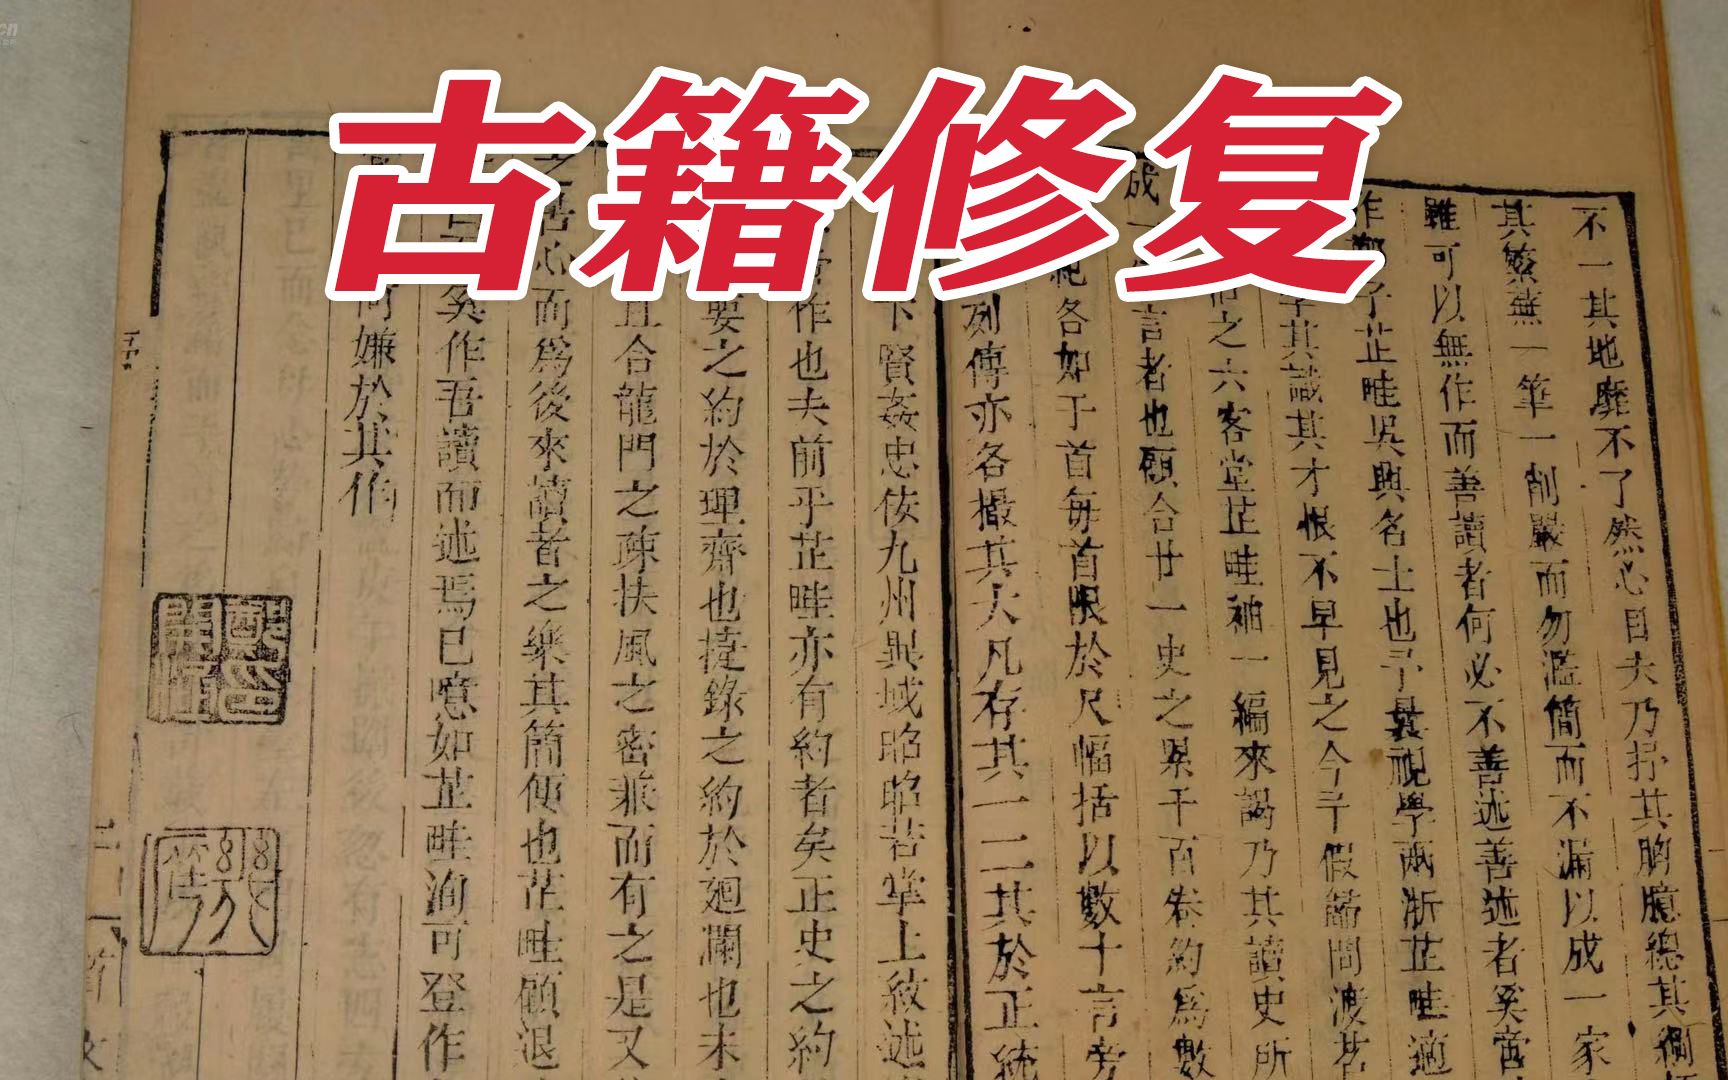 古籍修复
不一其地靡不了然心目夫乃抒其胸臆總其綱
其繁蕪一筆一削嚴而勿濫簡而不漏以成一家
雖可以無作而善讀者何必不善述善述者奚啻
作鄭子芷畦吳興名士也予曩視學兩浙芷畦適
學其識其才恨不早見之今年假歸問渡苕
之六客堂芷畦袖一編來謁乃其讀史所
言者也顧合廿一史之累千百卷約爲數
成一
絶各如于首每首限於尺幅括以數十言旁
列傳亦各撮其大凡存其一二其於正統
下賢姦忠佞九州異域昭昭若掌上敘述
作也夫前乎芷畦亦有約者矣正史之約
要之約於理齊也捷錄之約於廻瀾也未
且合龍門之疎扶風之密兼而有之是又
而爲後來讀者之樂其簡便也芷畦顧退
矣作吾讀而述焉已噫如芷畦洵可登作
何嫌於其作